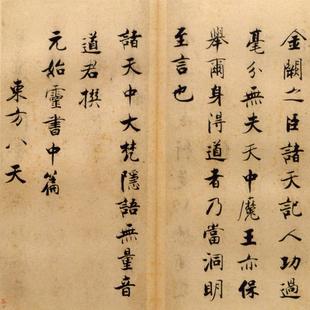 金闕之臣諸天記人功過
毫分無失天中魔王亦保
舉爾身得道者乃當洞明
至言也
諸天中大梵隱語無量音
道君撰
元始靈書中篇
東方八天